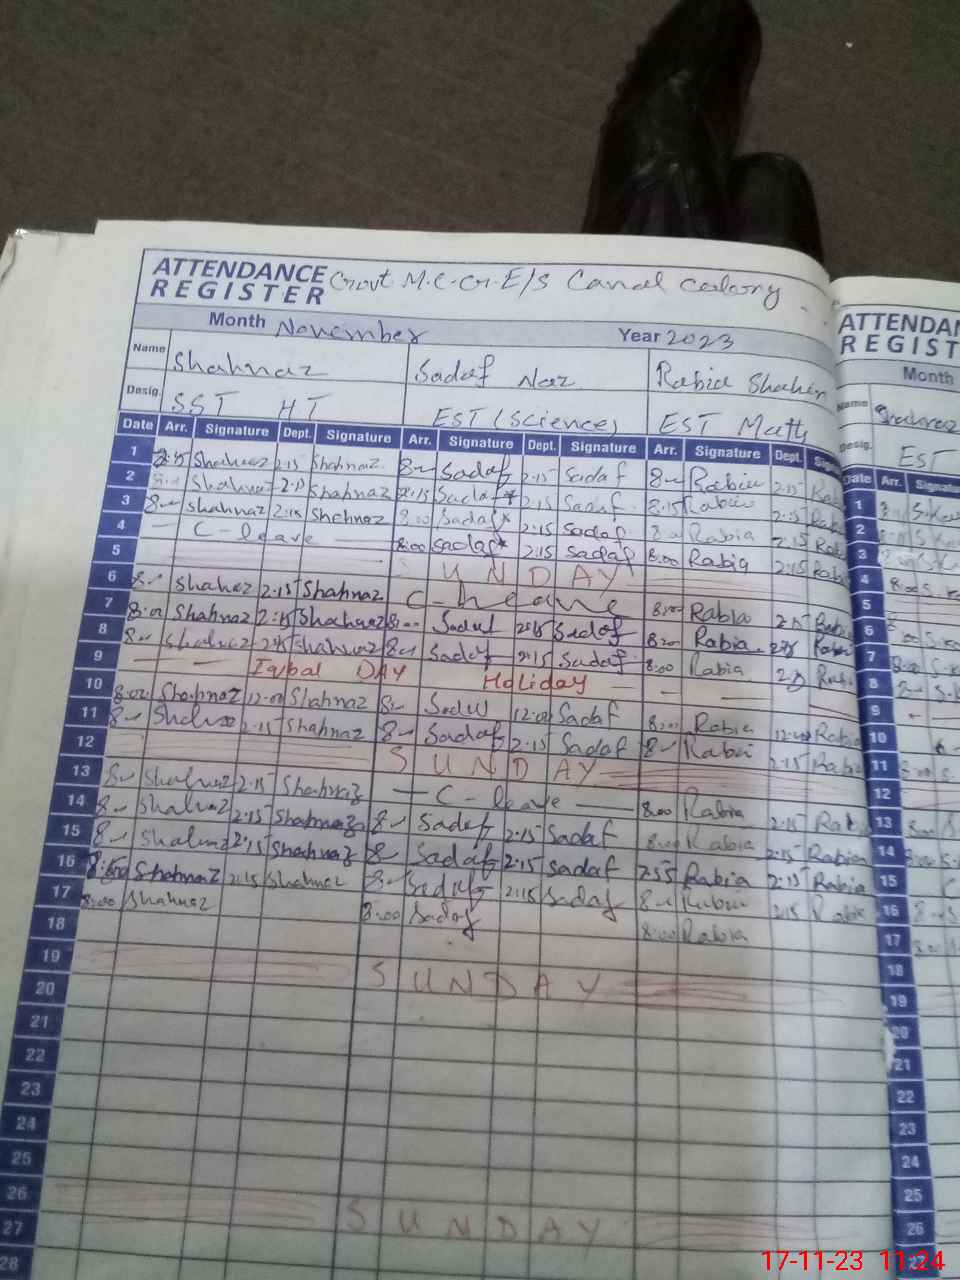 ATTENDANCE REGISTER Govt M.C.G.E/S Canal Colony
Month November Year 2023
Name Shahnaz Sadaf Naz Rabia Shahin
Desig. SST HT EST (Science) EST Math
Date Arr. Signature Dept. Signature Arr. Signature Dept. Signature Arr. Signature Dept.
1 Shahnaz 2:15 Shahnaz 8 Sadaf 2:15 Sadaf 8 Rabia 2:15
2 Shahnaz 2:15 Shahnaz 8:15 Sadaf 2:15 Sadaf 8:15 Rabia 2:15
3 8 Shahnaz 2:15 Shahnaz 8:00 Sadaf 2:15 Sadaf 8:00 Rabia 2:15
4 C-leave 8:00 Sadaf 2:15 Sadaf 8:00 Rabia 2:15
5 SUNDAY
6 8 Shahnaz 2:15 Shahnaz C-leave 8:00 Rabia 2:15 Rabia
7 8:00 Shahnaz 2:15 Shahnaz 8:00 Sadaf 2:15 Sadaf 8:00 Rabia 2:15 Rabia
8 8 Shahnaz 2:15 Shahnaz 8 Sadaf 2:15 Sadaf 8:00 Rabia Rabia
9 Iqbal DAY Holiday
10 8:00 Shahnaz 12:00 Shahnaz 8 Sadaf 12:00 Sadaf 8:00 Rabia 12:00 Rabia
11 8 Shahnaz 2:15 Shahnaz 8 Sadaf 2:15 Sadaf 8 Rabia 2:15 Rabia
12 SUNDAY
13 8 Shahnaz 2:15 Shahnaz C-leave 8:00 Rabia 2:15 Rabia
14 8 Shahnaz 2:15 Shahnaz 8 Sadaf 2:15 Sadaf 8:00 Rabia 2:15 Rabia
15 8 Shahnaz 2:15 Shahnaz 8 Sadaf 2:15 Sadaf 7:55 Rabia 2:15 Rabia
16 Shahnaz 2:15 Shahnaz 8 Sadaf 2:15 Sadaf 8 Rabia 2:15 Rabia
17 8:00 Shahnaz 8:00 Sadaf 8:00 Rabia
18
19 SUNDAY
20
21
22
23
24
25
26 SUNDAY
27
28
ATTENDAN
REGIST
Month
Name
Desig. EST
Date Arr. Signatu
1
2
3
4 8:00
5
6
7 8:00
8
9
10
11
12
13
14
15
16
17
18
19
20
21
22
23
24
25
26
27
17-11-23 11:24